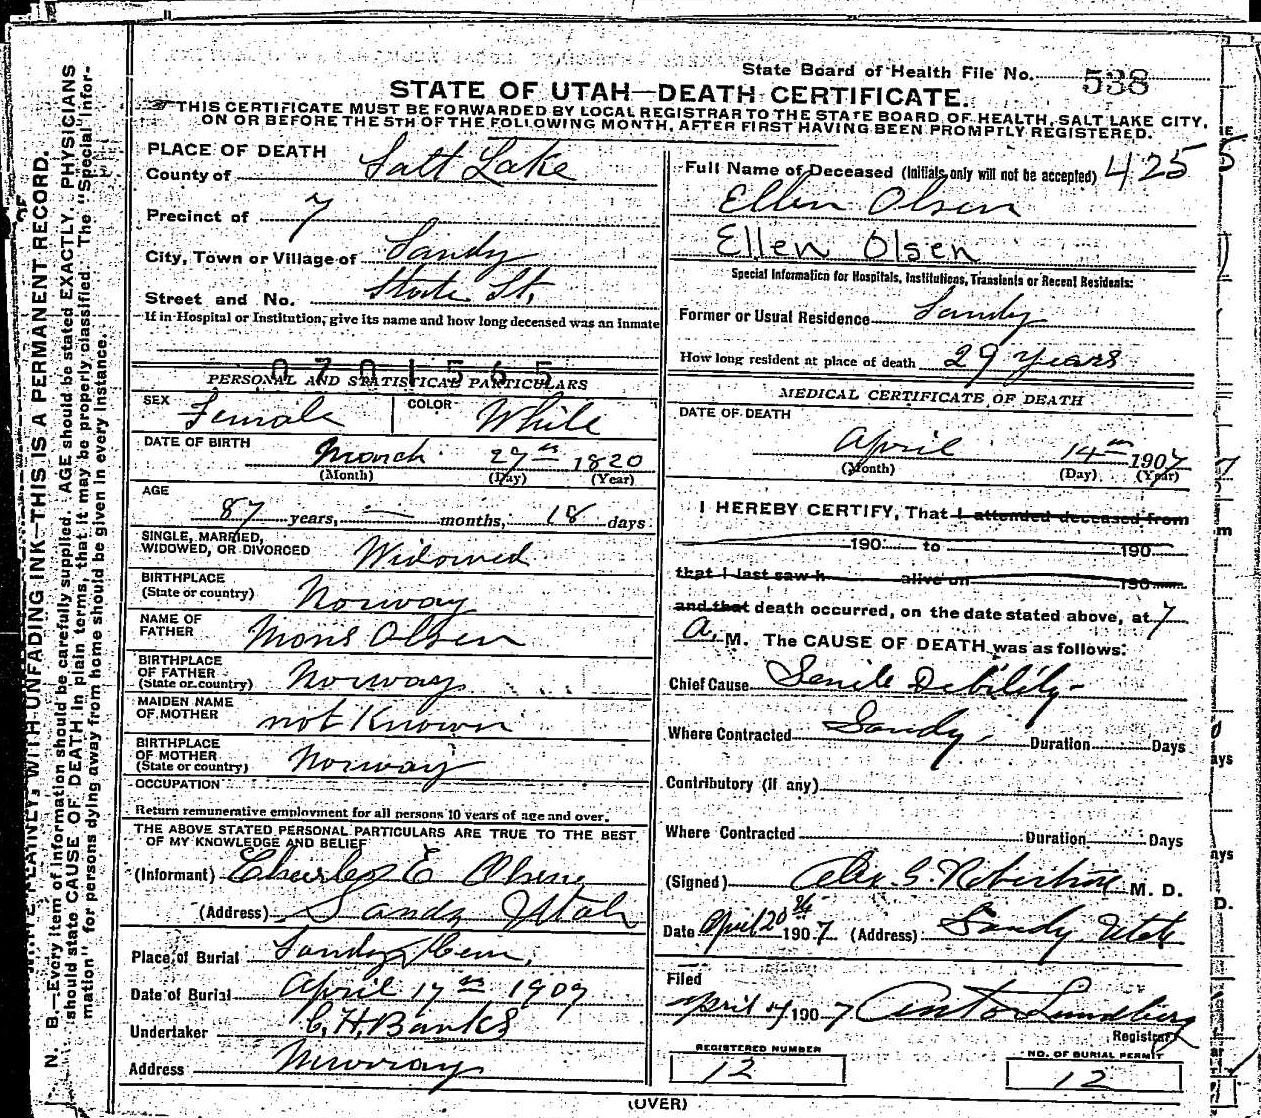 State Board of Health File No. 538
STATE OF UTAH—DEATH CERTIFICATE.
THIS CERTIFICATE MUST BE FORWARDED BY LOCAL REGISTRAR TO THE STATE BOARD OF HEALTH, SALT LAKE CITY,
ON OR BEFORE THE 5TH OF THE FOLLOWING MONTH, AFTER FIRST HAVING BEEN PROMPTLY REGISTERED.
PLACE OF DEATH
County of Salt Lake
Precinct of 7
City, Town or Village of Sandy
Street and No. State St.
If in Hospital or Institution, give its name and how long deceased was an inmate
0701565
PERSONAL AND STATISTICAL PARTICULARS
SEX Female COLOR White
DATE OF BIRTH March 27 1820
(Month) (Day) (Year)
AGE
87 years, — months, 18 days
SINGLE, MARRIED,
WIDOWED, OR DIVORCED Widowed
BIRTHPLACE
(State or country) Norway
NAME OF
FATHER Mons Olsen
BIRTHPLACE
OF FATHER
(State or country) Norway
MAIDEN NAME
OF MOTHER not Known
BIRTHPLACE
OF MOTHER
(State or country) Norway
OCCUPATION
Return remunerative employment for all persons 10 years of age and over.
THE ABOVE STATED PERSONAL PARTICULARS ARE TRUE TO THE BEST
OF MY KNOWLEDGE AND BELIEF
(Informant) Charles E
(Address) Sandy Utah
Place of Burial Sandy Cem.
Date of Burial April 17 1907
Undertaker C. H. Banks
Address Murray
Full Name of Deceased (Initials only will not be accepted) 425
Ellen Olsen
Ellen Olsen
Special Information for Hospitals, Institutions, Transients or Recent Residents:
Former or Usual Residence Sandy
How long resident at place of death 29 years
MEDICAL CERTIFICATE OF DEATH
DATE OF DEATH
April 14 1907
(Month) (Day) (Year)
I HEREBY CERTIFY, That I attended deceased from
190 to 190
that I last saw h alive on 190
and that death occurred, on the date stated above, at 7
a. M. The CAUSE OF DEATH was as follows:
Chief Cause Senile Debility
Where Contracted Sandy. Duration Days
Contributory (if any)
Where Contracted Duration Days
(Signed) Alex. G. Robertson M. D.
Date April 20th 1907 (Address) Sandy Utah
Filed
April 1907 Anton Lundberg
Registrar
REGISTERED NUMBER
12
NO. OF BURIAL PERMIT
12
(OVER)
WRITE PLAINLY, WITH UNFADING INK—THIS IS A PERMANENT RECORD.
N. B.—Every item of information should be carefully supplied. AGE should be stated EXACTLY. PHYSICIANS
should state CAUSE OF DEATH in plain terms, that it may be properly classified. The "Special Infor-
mation" for persons dying away from home should be given in every instance.